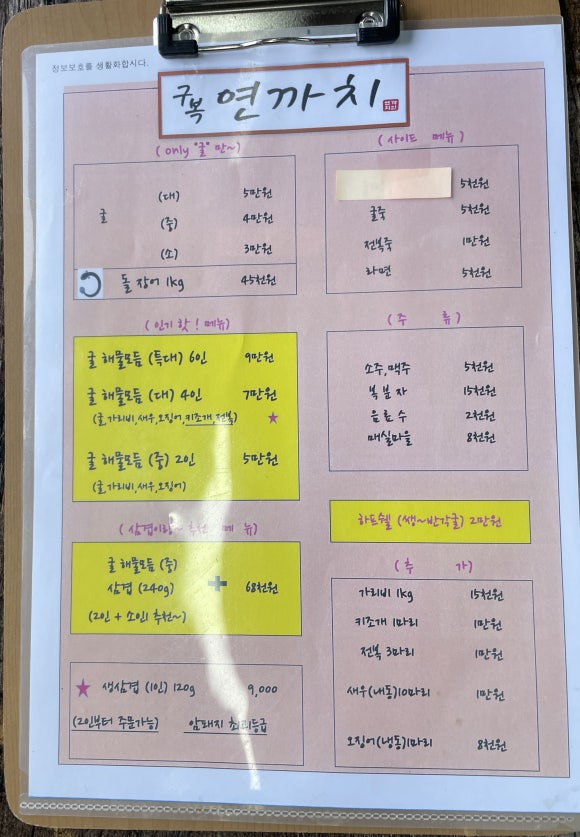 정보보호를 생활화합시다.
구복 연까치
(only "굴" 만~)
굴
(대) 5만원
(중) 4만원
(소) 3만원
돌 장어 1kg 45천원
(인기 핫! 메뉴)
굴 해물모듬 (특대) 6인 9만원
굴 해물모듬 (대) 4인 7만원
(굴,가리비,새우,오징어,키조개,전복) ★
굴 해물모듬 (중) 2인 5만원
(굴,가리비,새우,오징어)
(삼겹이랑~ 추천 메뉴)
굴 해물모듬 (중)
삼겹 (240g) + 68천원
(2인 + 소인1 추천~)
★ 생삼겹 (1인) 120g 9,000
(2인부터 주문가능) 암퇘지 최고등급
(사이드 메뉴)
5천원
굴죽 5천원
전복죽 1만원
라면 5천원
(주 류)
소주,맥주 5천원
복분자 15천원
음료수 2천원
매실마을 8천원
하프쉘 (쌩~반각굴) 2만원
(추 가)
가리비 1kg 15천원
키조개 1마리 1만원
전복 3마리 1만원
새우(냉동)10마리 1만원
오징어(냉동)1마리 8천원